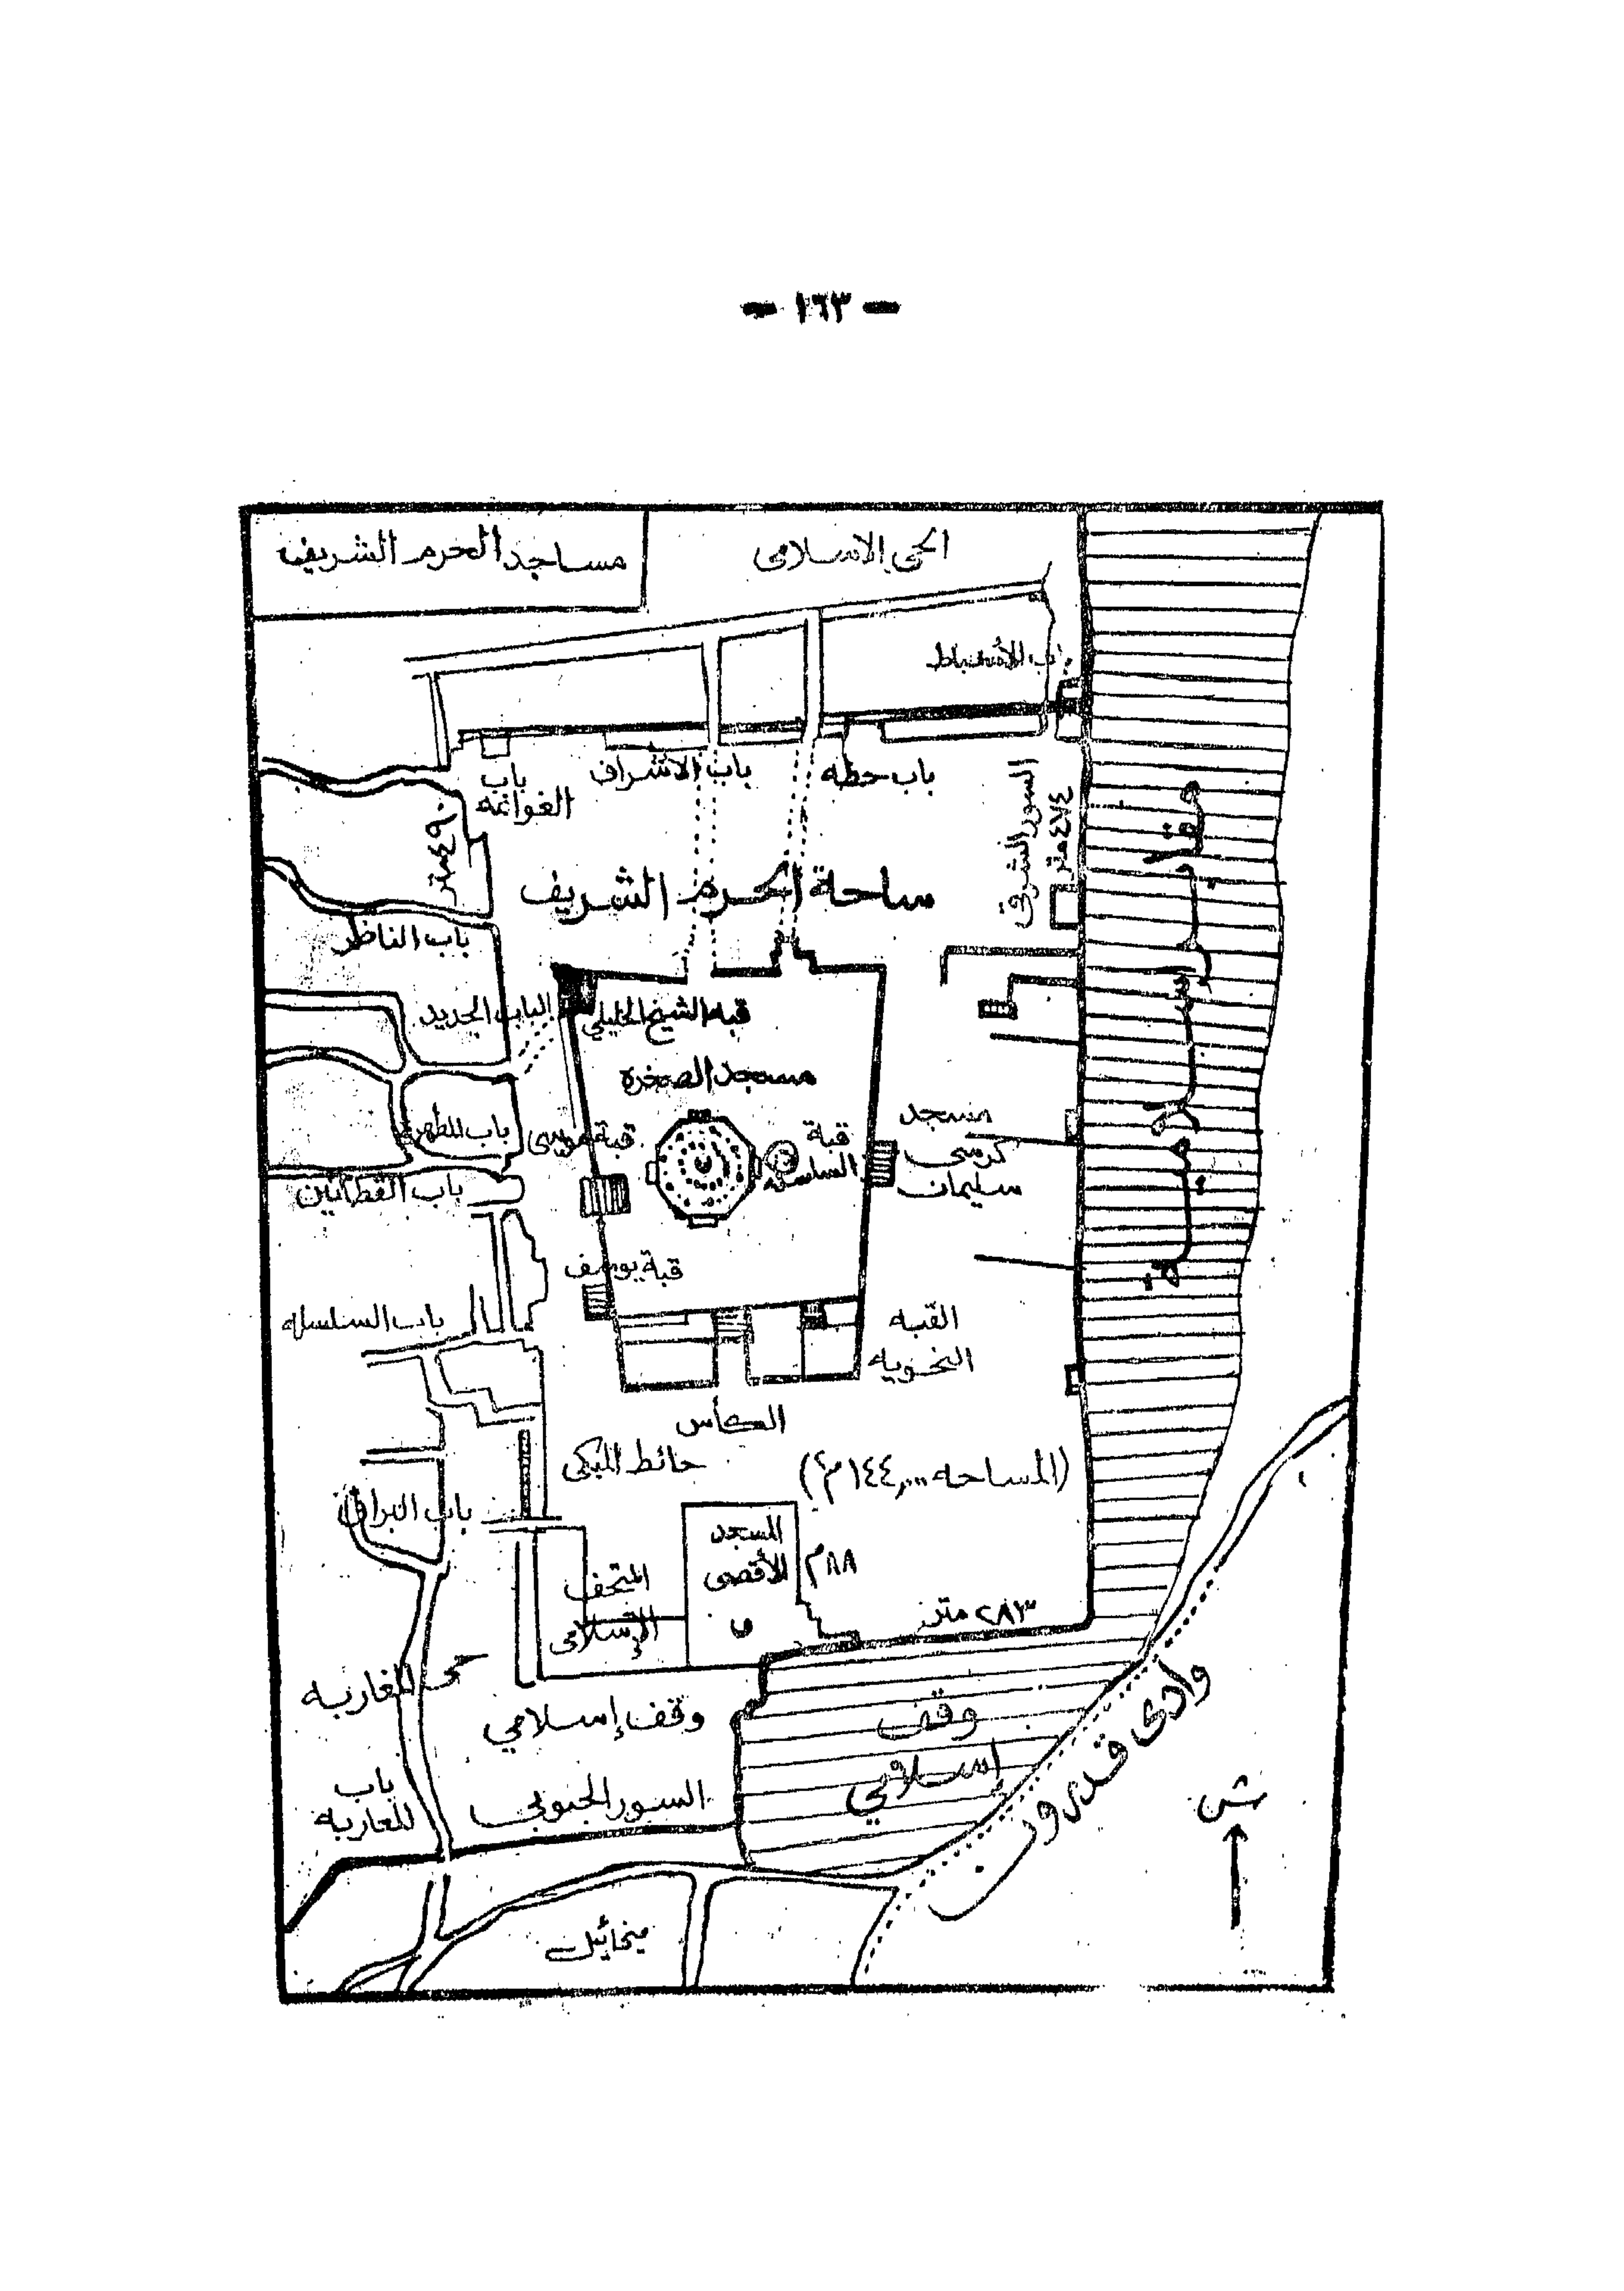 - ١٦٣ -
مساجد الحرم الشريف
الحى الاسلامى
باب الأسباط
باب حطه
باب الاشراف
باب
الغوانمه
٤٩٠ متر
السور الشرقى
٤٧٤ متر
ساحة الحرم الشريف
باب الناظر
الباب الجديد
قبه الشيخ الخليلي
مسجد الصخره
قبة موسى
قبة
السلسله
مسجد
كرسى
سليمان
مقابر إسلامية
باب المطهرة
باب القطانين
قبة يوسف
باب السلسله
القبه
النحويه
الكأس
حائط المبكى
(المساحه ١٤٤,٠٠٠ م٢)
باب البراق
المسجد
الأقصى
٨٨ م
المتحف
الإسلامى
٢٨٣ متر
حى المغاربه
وقف إسلامي
وقف
إسلامي
وادى قدرون
باب
المغاربه
السور الجنوبي
ش